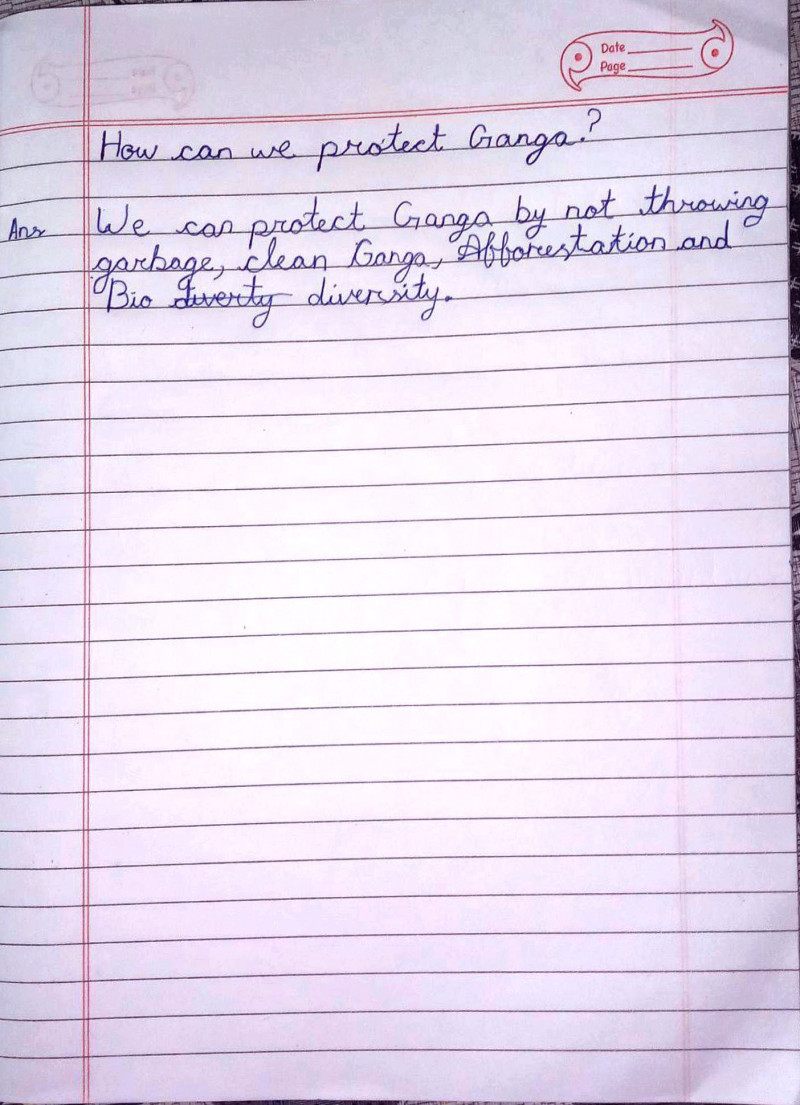 Date
Page
How can we protect Ganga?
Ans We can protect Ganga by not throwing
garbage, clean Ganga, Afforestation and
Bio diverty diversity.